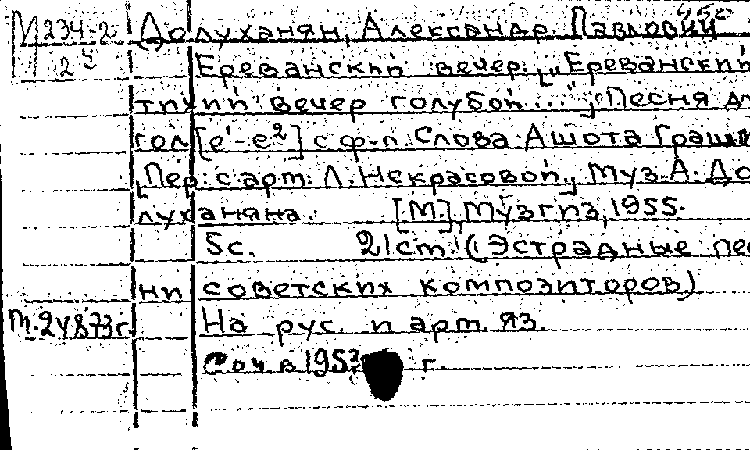 М 234-2 Долуханян, Александр Павлович
Ереванский вечер. „Ереванский
тихий вечер голубой..." Песня д
гол [е'-е²] с ф-п. Слова Ашота Граши
Пер. с арм. Л. Некрасовой, Муз. А. До
луханяна. [М.], Музгиз, 1955.
5с. 21 cm. (Эстрадные пес
ни советских композиторов)
На рус. и арм. яз.
Соч в 195 г.